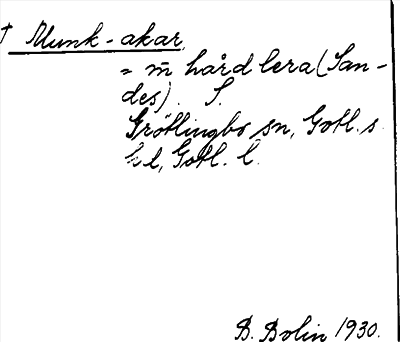 † Munk-akar
= m̄ hård lera (San-
des). S.
Grötlingbo sn, Gotl. s
hd, Gotl. l.
B. Bolin 1930.